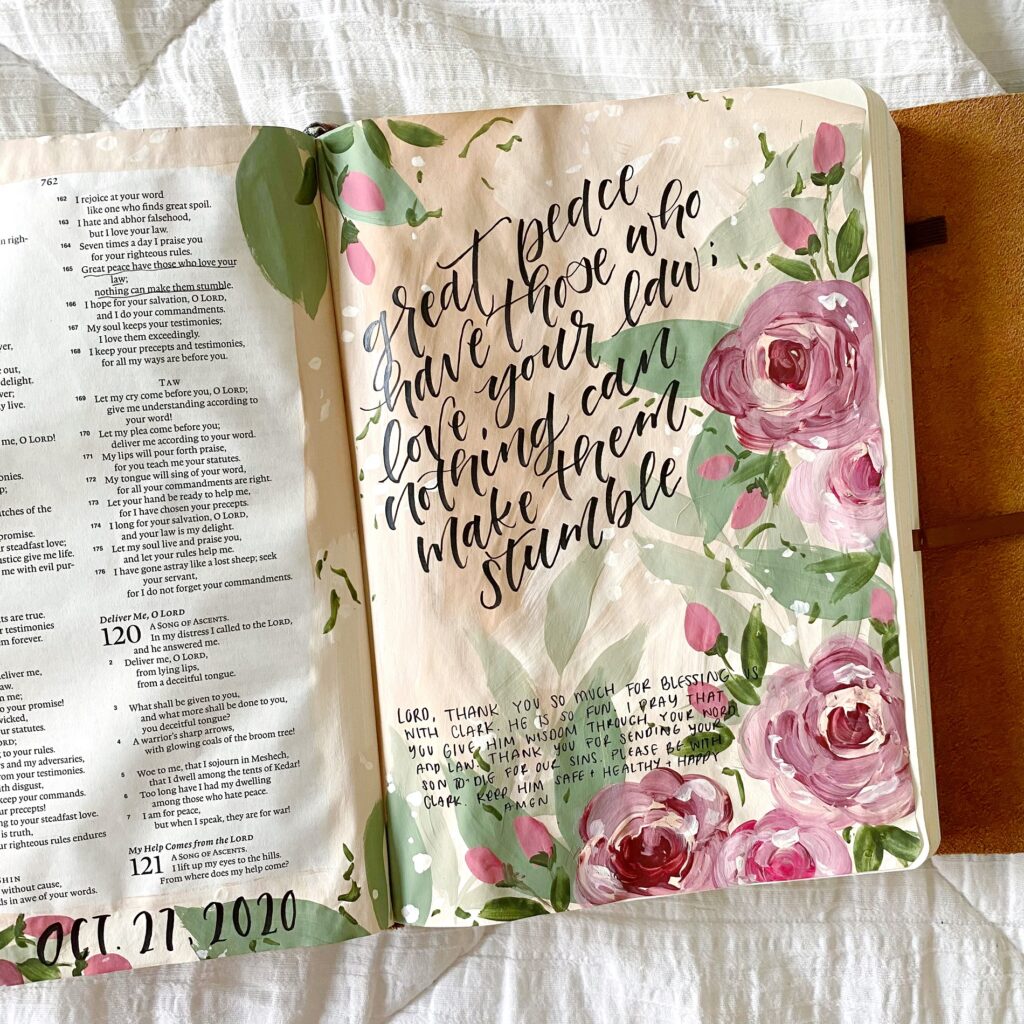 n righ-
ver,
e out,
delight.
ver;
y live.
me, O LORD!
onies.
p;
tches of the
promise.
r steadfast love;
ustice give me life.
me with evil pur-
ts are true.
r testimonies
m forever.
eliver me,
aw.
n me;
o your promise!
wicked,
ur statutes.
RD;
g to your rules.
rs and my adversaries,
rom your testimonies.
ith disgust,
keep your commands.
r precepts!
g to your steadfast love.
is truth,
ur righteous rules endures
HIN
without cause,
ds in awe of your words.
762
162 I rejoice at your word
like one who finds great spoil.
163 I hate and abhor falsehood,
but I love your law.
164 Seven times a day I praise you
for your righteous rules.
165 Great peace have those who love your
law;
nothing can make them stumble.
166 I hope for your salvation, O LORD,
and I do your commandments.
167 My soul keeps your testimonies;
I love them exceedingly.
168 I keep your precepts and testimonies,
for all my ways are before you.
TAW
169 Let my cry come before you, O LORD;
give me understanding according to
your word!
170 Let my plea come before you;
deliver me according to your word.
171 My lips will pour forth praise,
for you teach me your statutes.
172 My tongue will sing of your word,
for all your commandments are right.
173 Let your hand be ready to help me,
for I have chosen your precepts.
174 I long for your salvation, O LORD,
and your law is my delight.
175 Let my soul live and praise you,
and let your rules help me.
176 I have gone astray like a lost sheep; seek
your servant,
for I do not forget your commandments.
Deliver Me, O LORD
120 A SONG OF ASCENTS.
In my distress I called to the LORD,
and he answered me.
2 Deliver me, O LORD,
from lying lips,
from a deceitful tongue.
3 What shall be given to you,
and what more shall be done to you,
you deceitful tongue?
4 A warrior's sharp arrows,
with glowing coals of the broom tree!
5 Woe to me, that I sojourn in Meshech,
that I dwell among the tents of Kedar!
6 Too long have I had my dwelling
among those who hate peace.
7 I am for peace,
but when I speak, they are for war!
My Help Comes from the LORD
121 A SONG OF ASCENTS.
I lift up my eyes to the hills.
From where does my help come?
OCT. 27, 2020
great peace
have those who
love your law;
nothing can
make them
stumble
LORD, THANK YOU SO MUCH FOR BLESSING US
WITH CLARK. HE IS SO FUN. I PRAY THAT
YOU GIVE HIM WISDOM THROUGH YOUR WORD
AND LAW. THANK YOU FOR SENDING YOUR
SON TO DIE FOR OUR SINS. PLEASE BE WITH
CLARK. KEEP HIM SAFE + HEALTHY + HAPPY
AMEN